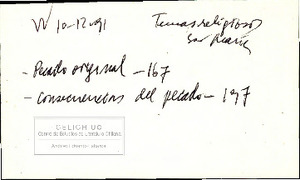 W 10-12-91 Temas religiosos
- Pecado original - 167
- consecuencias del pecado - 197
CELICH UC
Centro de Estudios de Literatura Chilena